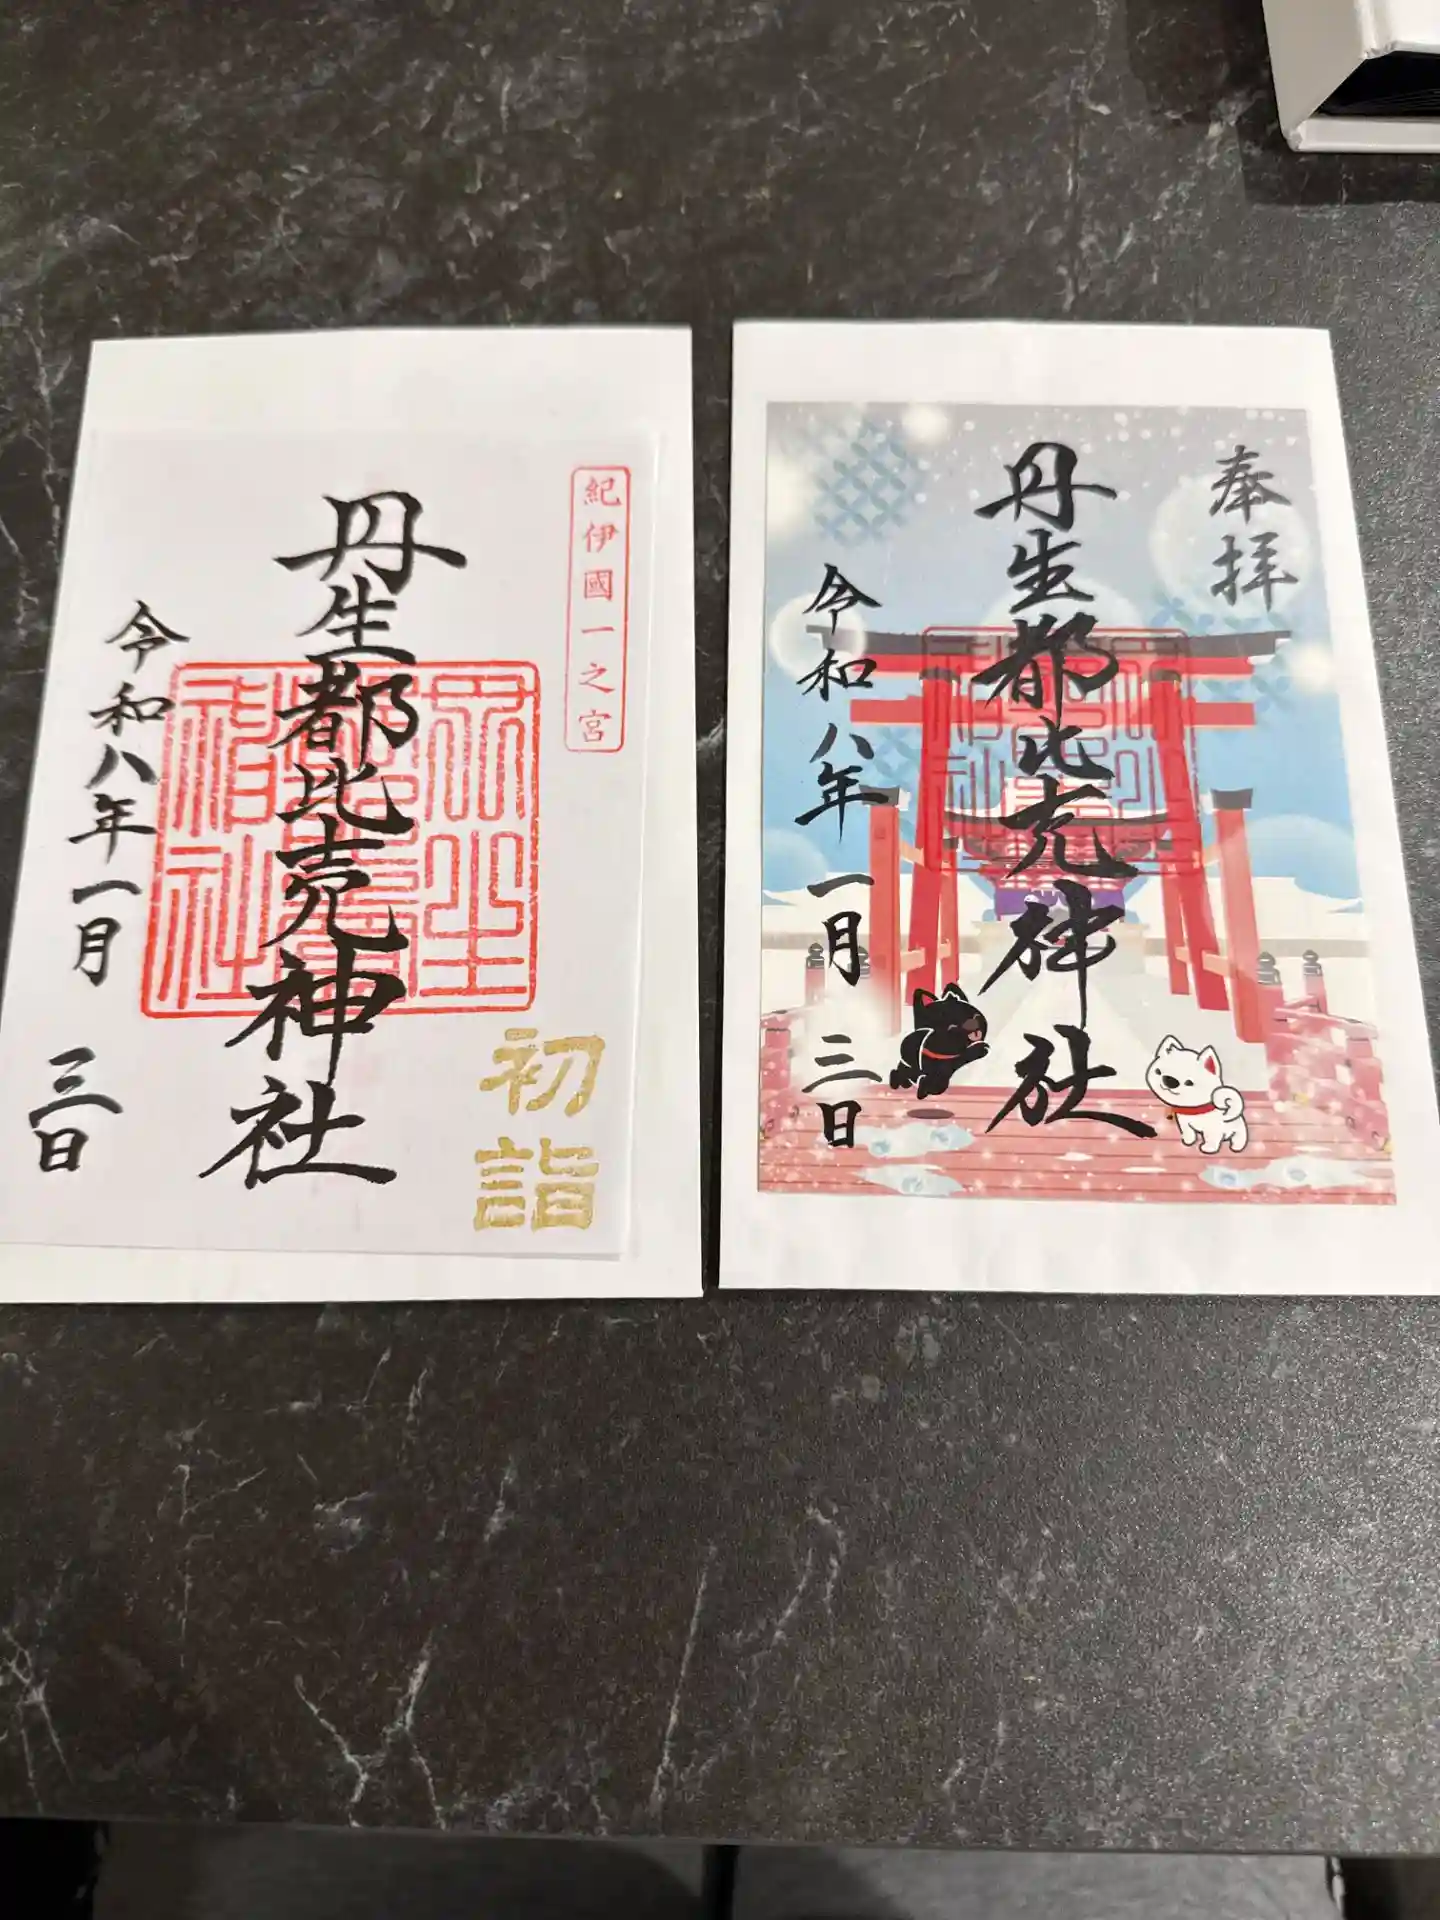 紀伊國一之宮
丹生都比売神社
丹生都比売神社
令和八年一月三日
初詣
奉拝
丹生都比売神社
令和八年一月三日